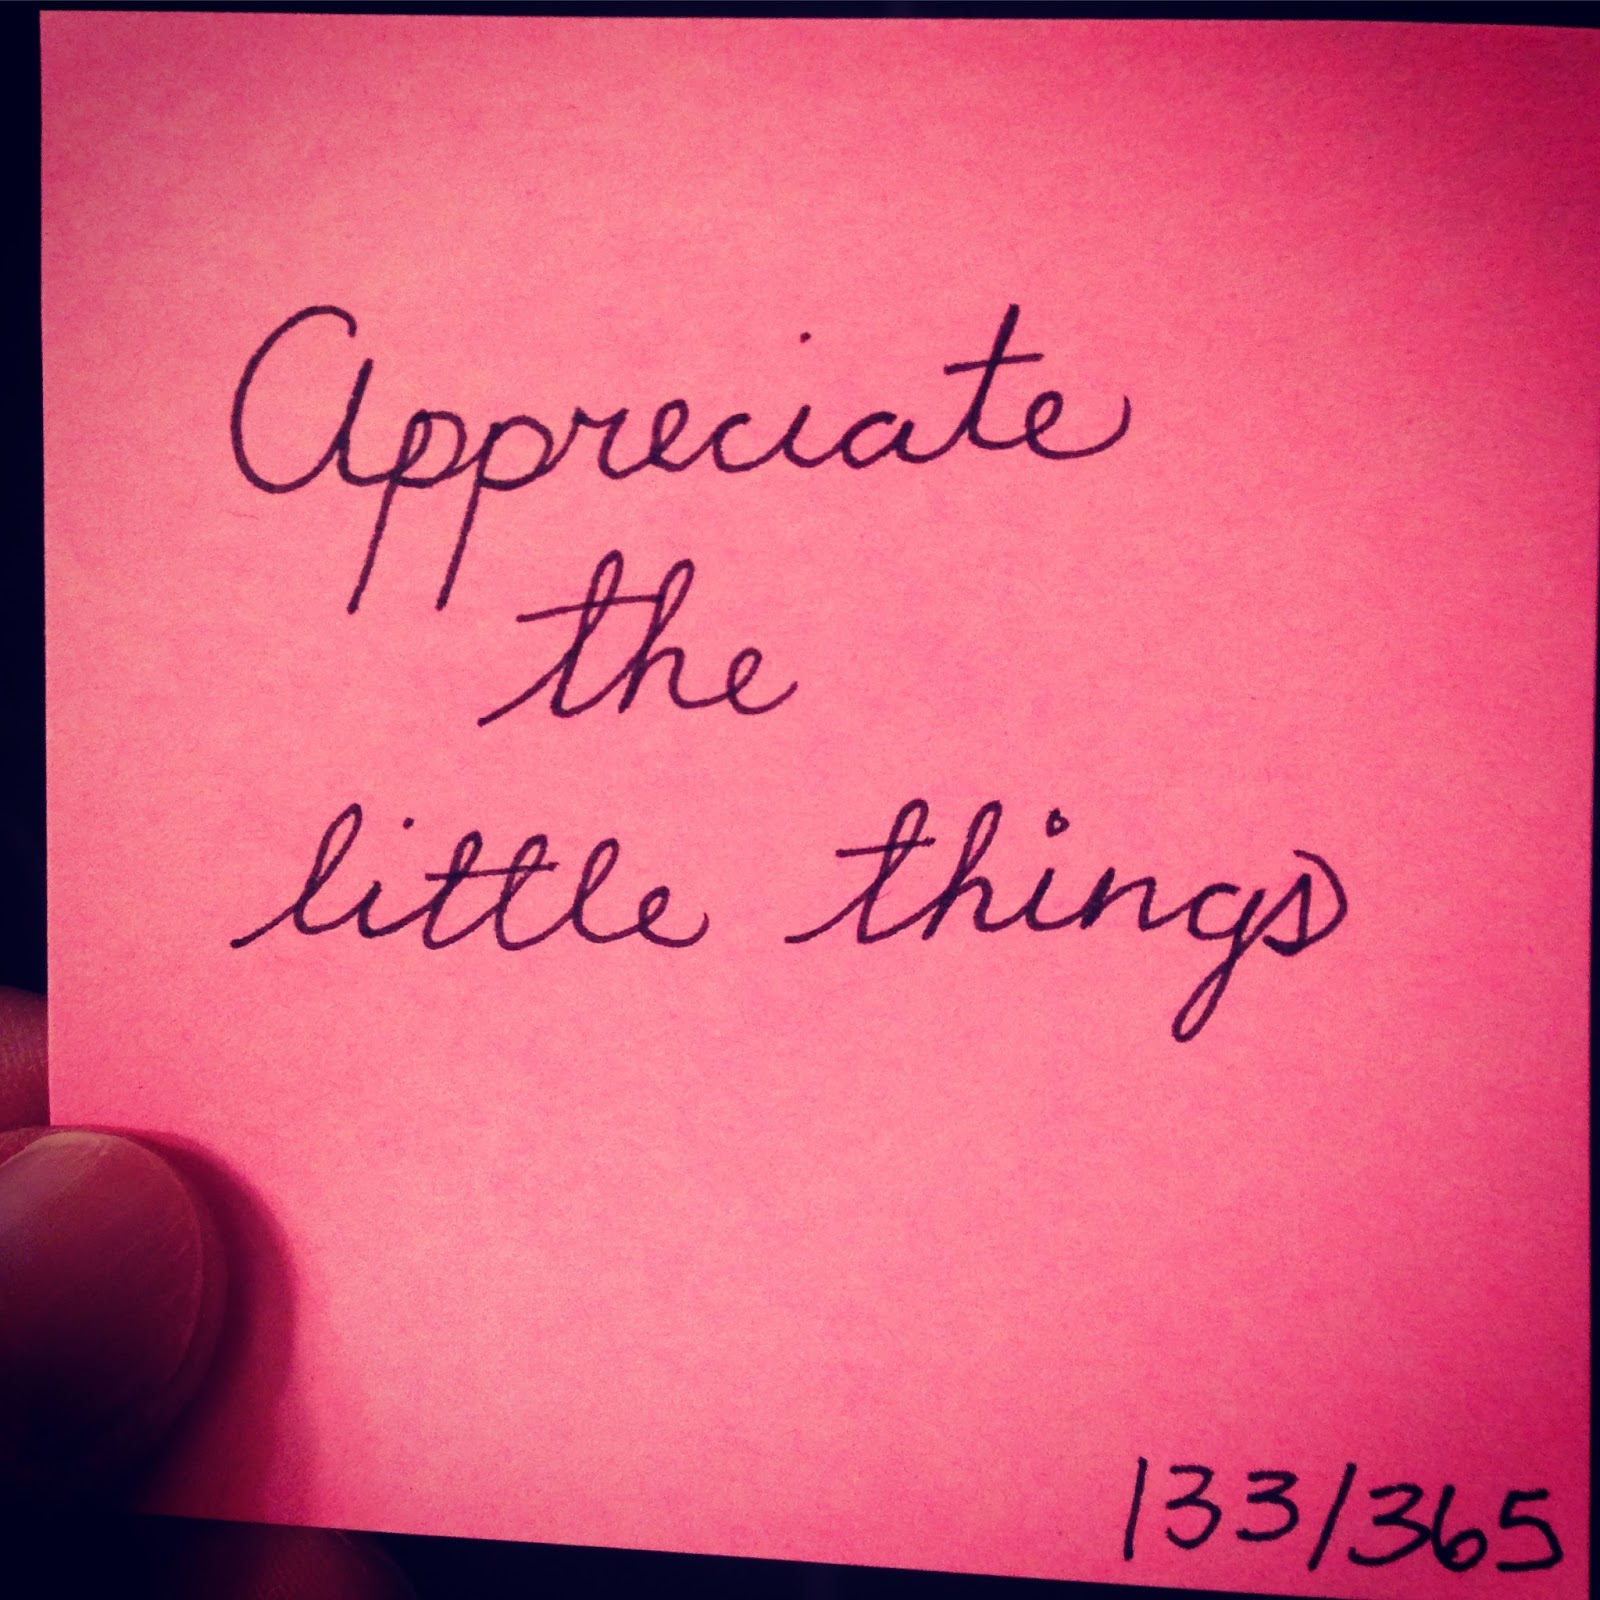 Appreciate
the
little things
133/365